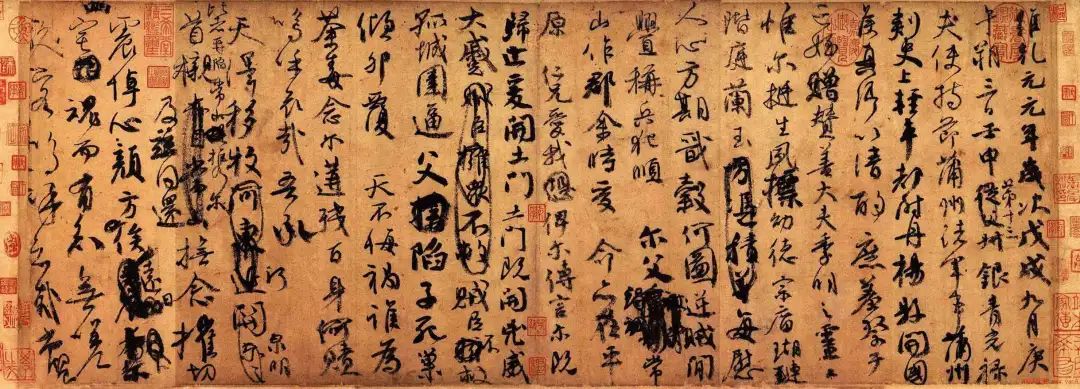 維乾元元年歲次戊戌九月庚
午朔三日壬申第十三從父叔銀青光祿
夫使持節蒲州諸軍事蒲州
刺史上輕車都尉丹楊縣開國
侯真卿以清酌庶羞祭于
亡姪贈贊善大夫季明之靈曰
惟爾挺生夙標幼德宗廟瑚璉
階庭蘭玉方憑積善每慰
人心方期戩穀何圖逆賊閒
釁稱兵犯順爾父常
山作郡余時受命亦在平
原仁兄愛我俾爾傳言爾既
歸止爰開土門土門既開兇威
大蹙賊臣擁眾不救賊臣不救
孤城圍逼父陷子死巢
傾卵覆天不悔禍誰為
荼毒念爾遘殘百身何贖
嗚呼哀哉吾承
天澤移牧河關泉明
比者再陷常山攜爾
首櫬及茲同還撫念摧切
震悼心顏方俟遠日
宅魂而有知無嗟
久客嗚呼哀哉尚饗